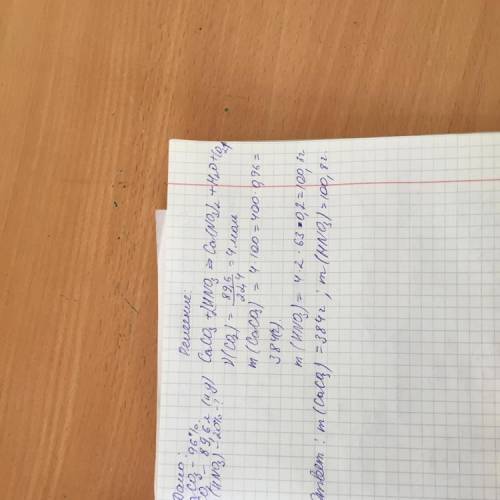 Дано:
CO₃ - 96%.
- 89,6 л (н.у)
(HNO₃) - 20% - ?
Решение:
CaCO₃ + 2HNO₃ ⇒ Ca(NO₃)₂ + H₂O + CO₂↑
ν(CO₂) = 89,6/22,4 = 4 моль
m(CaCO₃) = 4·100 = 400·0,96 =
384(г).
m(HNO₃) = 4·2·63·0,2 = 100,8 г
Ответ: m(CaCO₃) = 384 г; m(HNO₃) = 100,8 г.